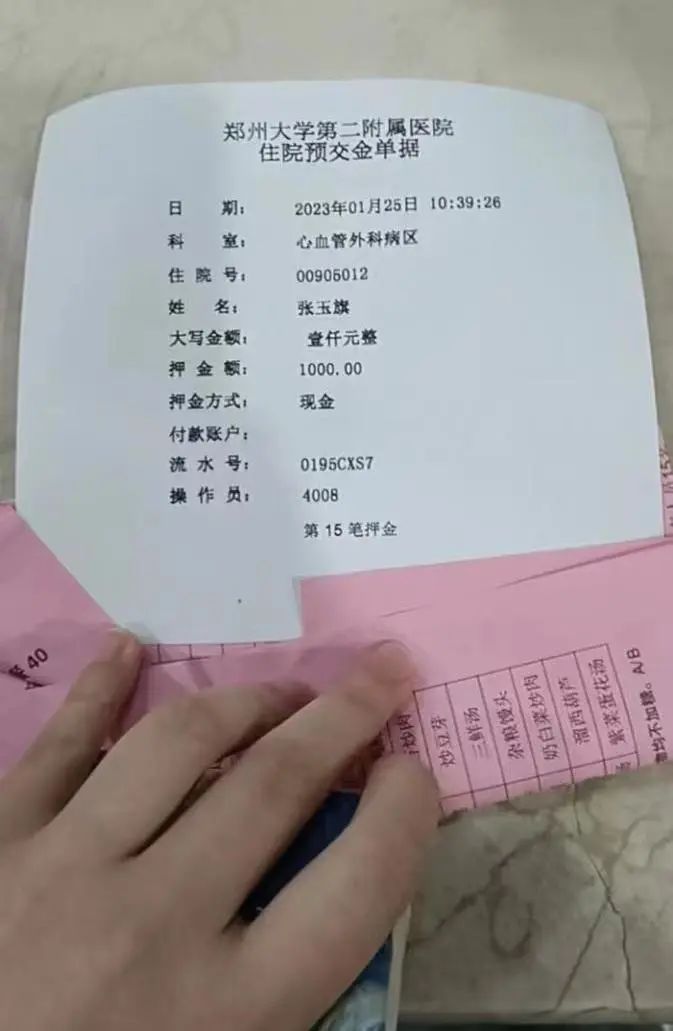 郑州大学第二附属医院
住院预交金单据
日 期： 2023年01月25日 10:39:26
科 室： 心血管外科病区
住 院 号： 00905012
姓 名： 张玉旗
大写金额： 壹仟元整
押 金 额： 1000.00
押金方式： 现金
付款账户：
流 水 号： 0195CXS7
操 作 员： 4008
第 15 笔押金
40
炒肉
炒豆芽
三鲜汤
杂粮馒头
奶白菜炒肉
溜西葫芦
紫菜蛋花汤
均不加糖。A/B
15%